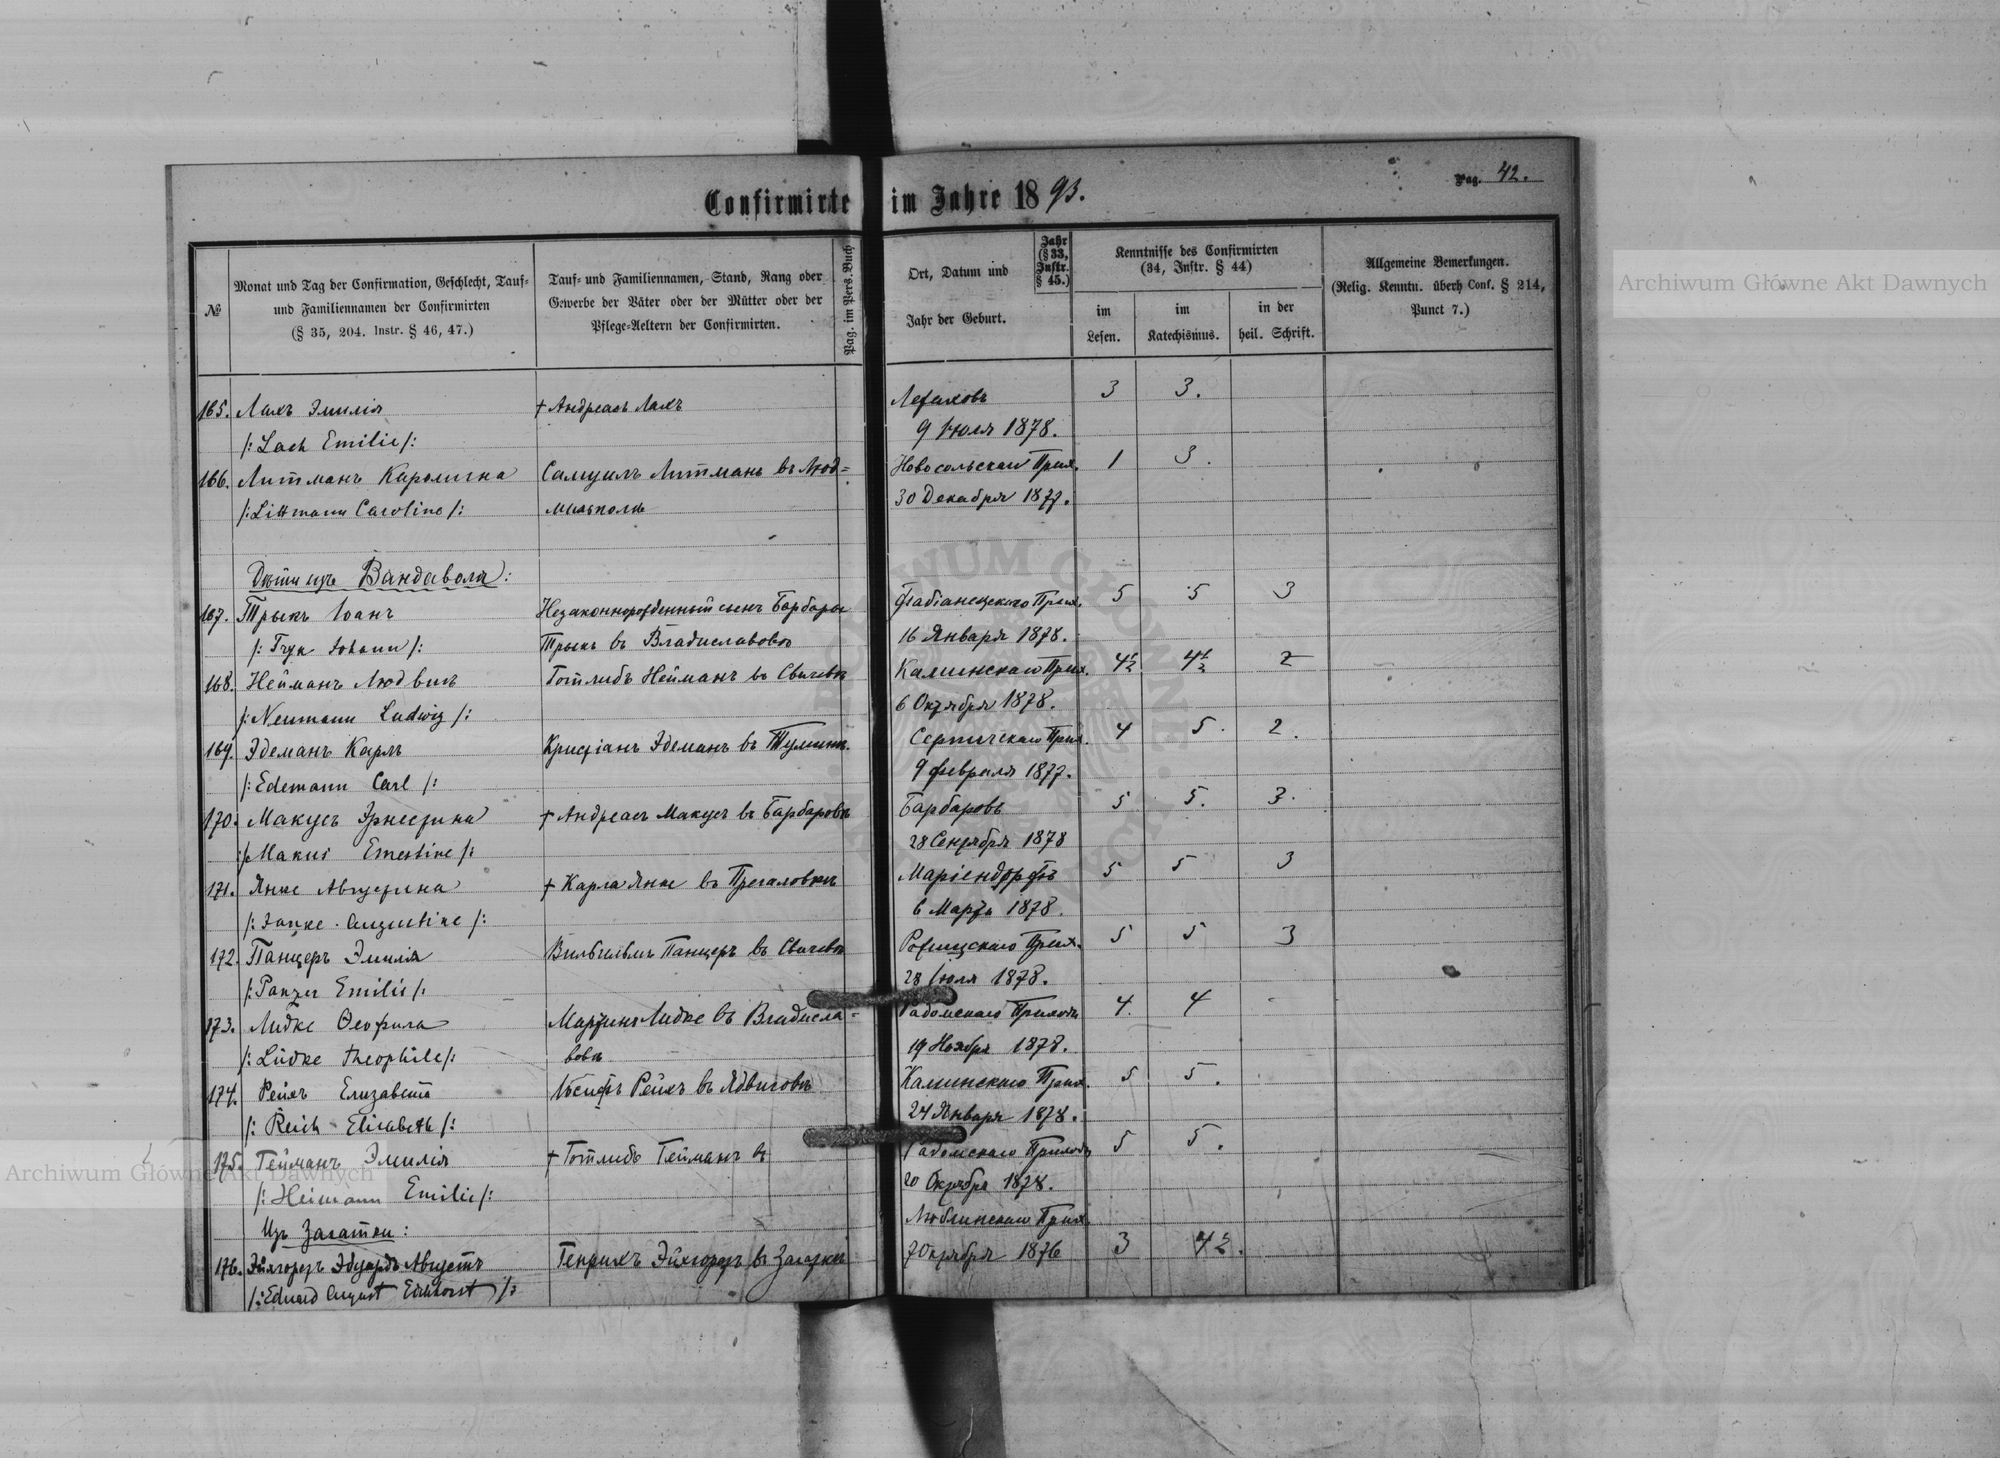 Confirmirte im Jahre 1893.
Pag. 42.
№
Monat und Tag der Confirmation, Geschlecht, Tauf-
und Familiennamen der Confirmirten
(§ 35, 204. Instr. § 46, 47.)
Tauf- und Familiennamen, Stand, Rang oder
Gewerbe der Väter oder der Mütter oder der
Pflege-Aeltern der Confirmirten.
Pag. im Pers. Buch
Ort, Datum und
Jahr der Geburt.
Jahr
(§ 33,
Instr.
§ 45.)
Kenntnisse des Confirmirten
(34, Instr. § 44)
im
Lesen.
im
Katechismus.
in der
heil. Schrift.
Allgemeine Bemerkungen.
(Relig. Kenntn. überh Conf. § 214,
Punct 7.)
165. Лахъ Эмилія † Андреасъ Лахъ 3 3.
/: Lach Emilie /: 9 Іюля 1878.
166. Литманъ Каролина Самуилъ Литманъ въ Люд= Новосольскаго Прих. 1 3.
/: Littmann Caroline /: мильполь 30 Декабря 1877.
Дѣти изъ Вандаволя:
167. Трыкъ Іоанъ Незаконнорожденный сынъ Барбары Фабіанецскаго Прих. 5 5 3
/: Tryk Johann /: Трыкъ въ Владиславовкѣ 16 Января 1878.
168. Нейманъ Людвигъ Готлибъ Нейманъ въ Свичевкѣ Калишскаго Прих. 4½ 4½ 2
/: Neumann Ludwig /: 6 Октября 1878.
169. Эдеманъ Карлъ Кристіанъ Эдеманъ въ 4 5. 2.
/: Edemann Carl /: 9 февраля 1877.
170. Макусъ Эрнестина † Андреасъ Макусъ въ Барбаровкѣ Барбаровъ 5 5. 3.
/: Makus Ernestine /: 28 Сентября 1878
171. Янке Августина † Карла Янке въ Маріендорфъ 5 5 3
/: Janke Augustine /: 6 Марта 1878.
172. Панцеръ Эмилія Вильгельмъ Панцеръ въ Свичевкѣ Рожищскаго Прих. 5 5 3
/: Panzer Emilie /: 28 Іюля 1878.
173. Лидке Теофила Мартинъ Лидке въ Владисла= Радомскаго Прихода 4. 4
/: Lüdke Theophile /: вовкѣ 19 Ноября 1878.
174. Рейхъ Елизавета Іосифъ Рейхъ въ Ядвиговкѣ Калишскаго Прих. 5 5.
/: Reich Elisabeth /: 24 Января 1878.
175. Гейманъ Эмилія † Готлибъ Гейманъ въ Радомскаго Прихода 5 5.
/: Heimann Emilie /: 20 Октября 1878.
Изъ Загатки: Люблинскаго Прих.
176. Эйхгорстъ Эдуардъ Августъ Генрихъ Эйхгорстъ въ Загаткѣ 7 Октября 1876 3 4½.
/: Eduard August Eichhorst /:
Archiwum Główne Akt Dawnych
Archiwum Główne Akt Dawnych